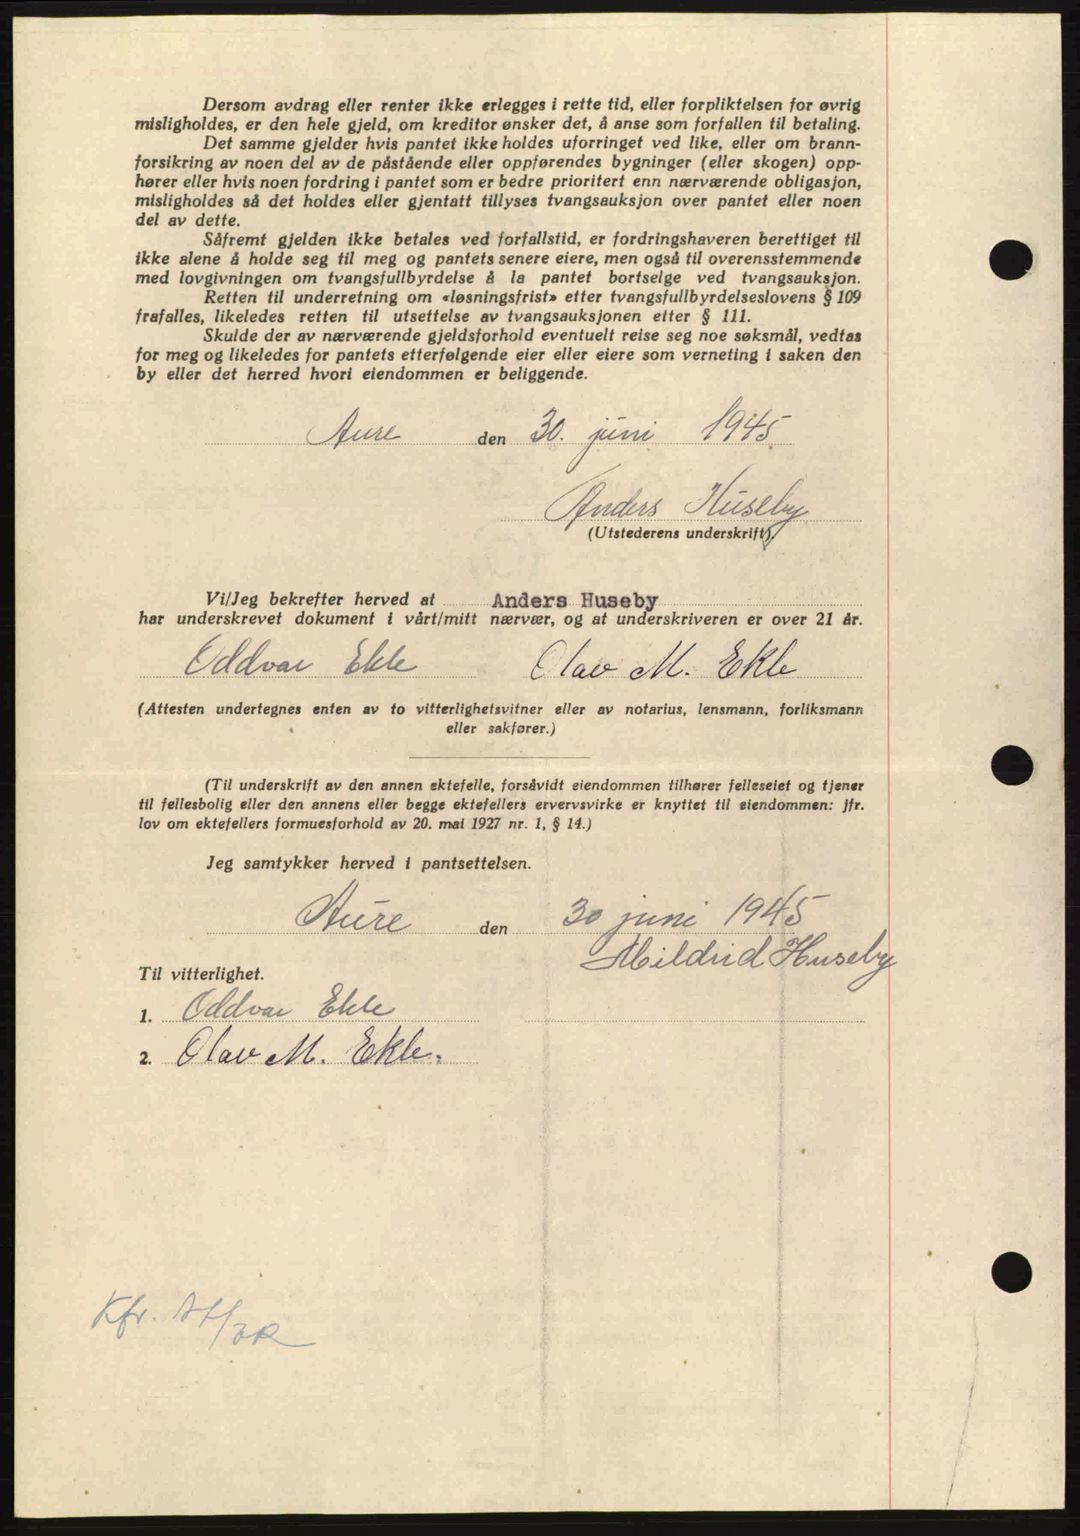 Dersom avdrag eller renter ikke erlegges i rette tid, eller forpliktelsen for øvrig
misligholdes, er den hele gjeld, om kreditor ønsker det, å anse som forfallen til betaling.
Det samme gjelder hvis pantet ikke holdes uforringet ved like, eller om brann-
forsikring av noen del av de påstående eller oppførendes bygninger (eller skogen) opp-
hører eller hvis noen fordring i pantet som er bedre prioritert enn nærværende obligasjon,
misligholdes så det holdes eller gjentatt tillyses tvangsauksjon over pantet eller noen
del av dette.
Såfremt gjelden ikke betales ved forfallstid, er fordringshaveren berettiget til
ikke alene å holde seg til meg og pantets senere eiere, men også til overensstemmende
med lovgivningen om tvangsfullbyrdelse å la pantet bortselge ved tvangsauksjon.
Retten til underretning om «løsningsfrist» etter tvangsfullbyrdelseslovens § 109
frafalles, likeledes retten til utsettelse av tvangsauksjonen etter § 111.
Skulde der av nærværende gjeldsforhold eventuelt reise seg noe søksmål, vedtas
for meg og likeledes for pantets etterfølgende eier eller eiere som verneting i saken den
by eller det herred hvori eiendommen er beliggende.
Aure den 30. juni 1945
Anders Huseby
(Utstederens underskrift).
Vi/Jeg bekrefter herved at Anders Huseby
har underskrevet dokument i vårt/mitt nærvær, og at underskriveren er over 21 år.
Oddvar Ekle Olav M. Ekle
(Attesten undertegnes enten av to vitterlighetsvitner eller av notarius, lensmann, forliksmann
eller sakfører.)
(Til underskrift av den annen ektefelle, forsåvidt eiendommen tilhører felleseiet og tjener
til fellesbolig eller den annens eller begge ektefellers ervervsvirke er knyttet til eiendommen: jfr.
lov om ektefellers formuesforhold av 20. mai 1927 nr. 1, § 14.)
Jeg samtykker herved i pantsettelsen.
Aure den 30 juni 1945
Mildrid Huseby
Til vitterlighet.
1. Oddvar Ekle
2. Olav M. Ekle.
Kfr.